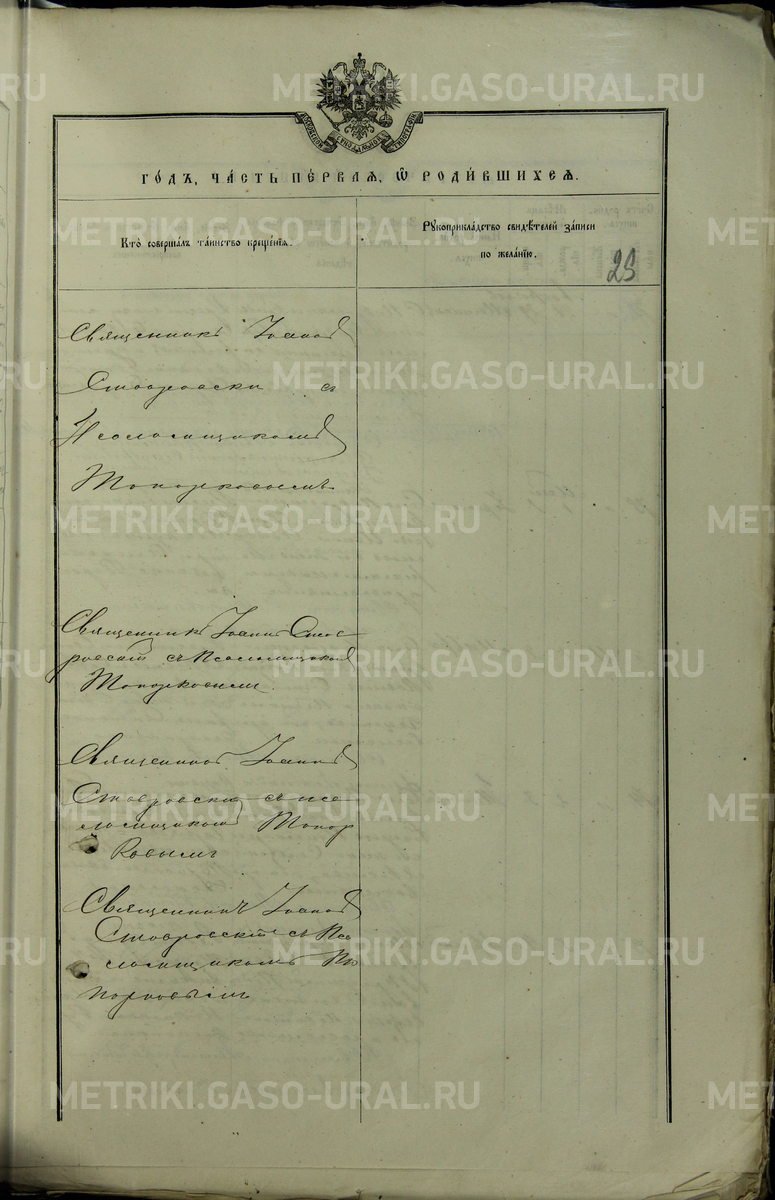 METRIKI.GASO-URAL.RU
МОСКОВСКОЙ СѴНОДАЛЬНОЙ ТИПОГРАФІИ
ГО́ДЪ, ЧА́СТЬ ПЕ́РВАѦ, Ѡ҆ РОДИ́ВШИХСѦ.
Кто̀ соверша́лъ та́инство креще́нїѧ.
Рꙋкоприкла́дство свидѣ́телей за́писи
по жела́нїю.
25
Священникъ Іоаннъ
Ставровски съ
Псаломщикомъ
Топорковымъ
Священникъ Іоаннъ Став
ровскій съ Псаломщикомъ
Топорковымъ
Священникъ Іоаннъ
Ставровскій съ пса
ломщикомъ Топор
ковымъ
Священникъ Іоаннъ
Ставровскій съ Пса
ломщикомъ То
порковымъ
METRIKI.GASO-URAL.RU